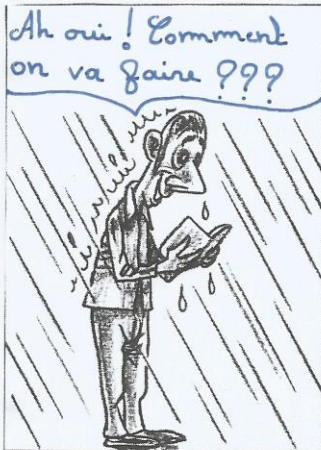 Ah oui ! Comment
on va faire ???